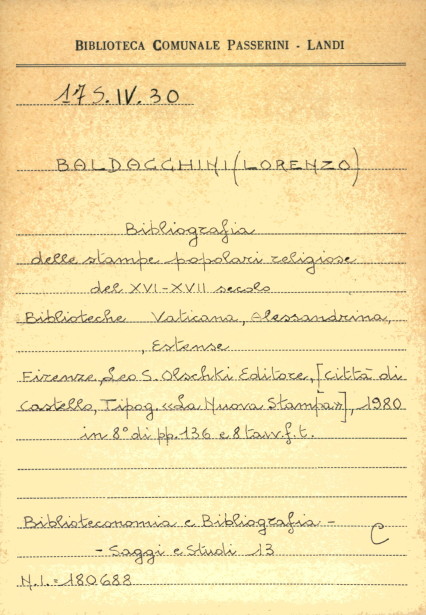 BIBLIOTECA COMUNALE PASSERINI - LANDI
17 S. IV. 30
BALDACCHINI (LORENZO)
Bibliografia
delle stampe popolari religiose
del XVI-XVII secolo
Biblioteche Vaticana, Alessandrina,
, Estense
Firenze, Leo S. Olschki Editore, [Città di
Castello, Tipog. «La Nuova Stampa»], 1980
in 8° di pp. 136 e 8 tavv. f. t.
Biblioteconomia e Bibliografia -
C
- Saggi e Studi 13
N.I. = 180688